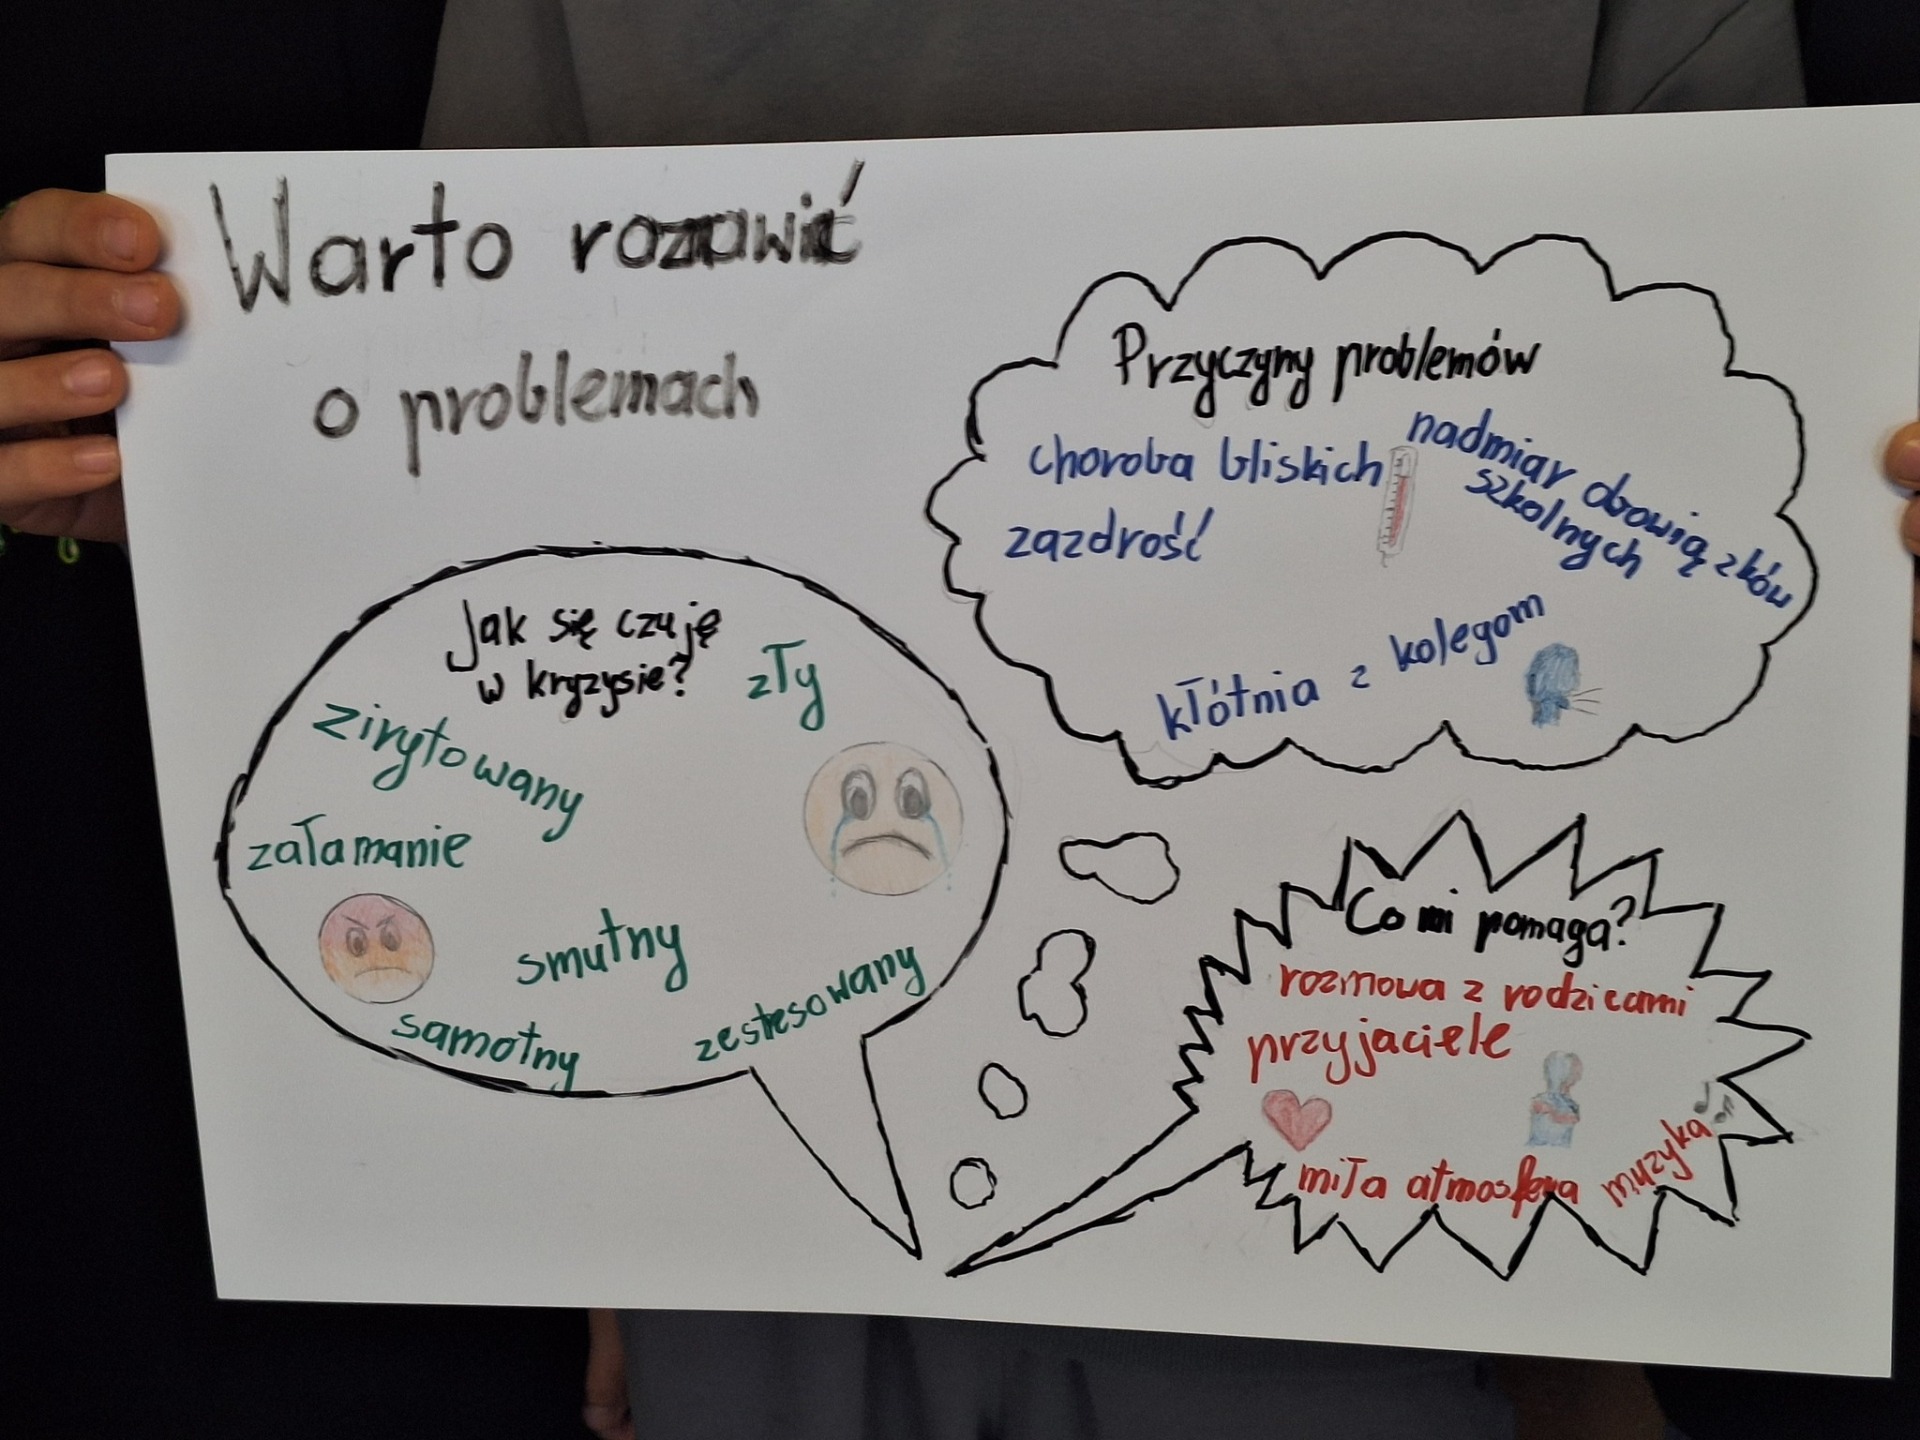 Warto rozmawiać
o problemach
Przyczyny problemów
choroba bliskich
nadmiar obowiązków
szkolnych
zazdrość
kłótnia z kolegom
Jak się czuję
w kryzysie?
zły
zirytowany
załamanie
smutny
samotny
zestresowany
Co mi pomaga?
rozmowa z rodzicami
przyjaciele
miła atmosfera
muzyka